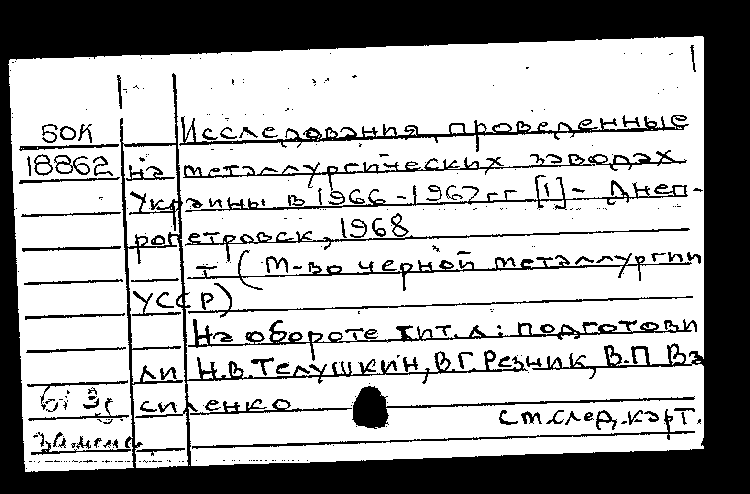 БОК Исследования, проведенные
18862 на металлургических заводах
Украины в 1966-1967 гг [1] - Днеп-
ропетровск, 1968
т (М-во черной металлургии
УССР)
На обороте тит. л: подготови
ли Н.В. Телушкин, В.Г. Резник, В.П Ва
силенко
см. след. карт.